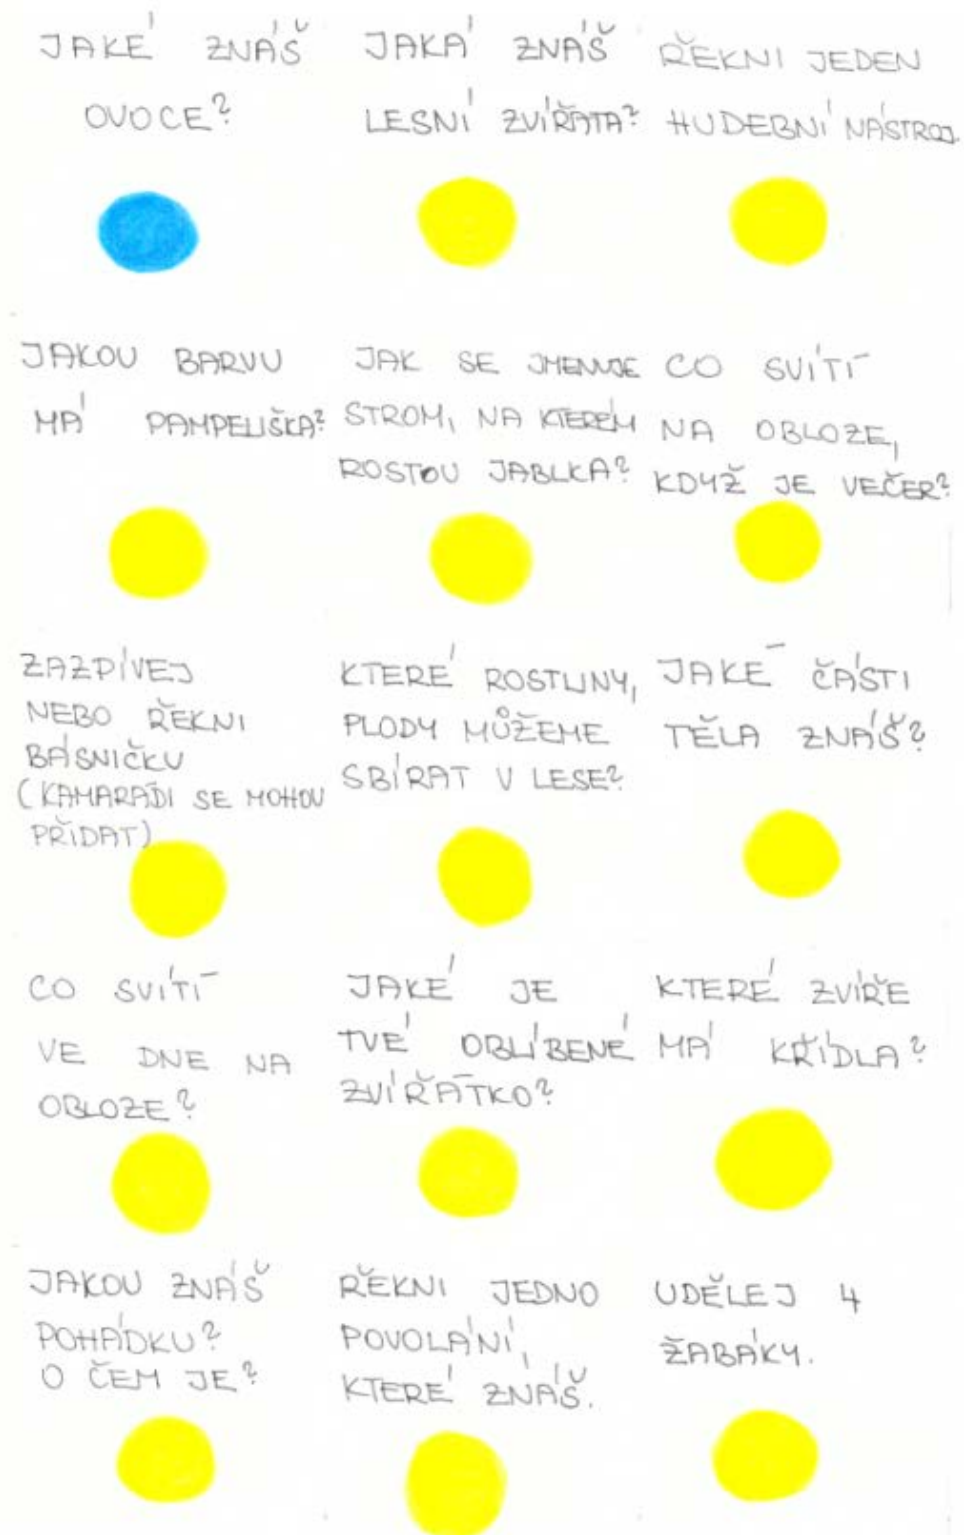 JAKÉ ZNÁŠ
OVOCE?
JAKÁ ZNÁŠ
LESNÍ ZVÍŘATA?
ŘEKNI JEDEN
HUDEBNÍ NÁSTROJ.
JAKOU BARVU
MÁ PAMPELIŠKA?
JAK SE JMENUJE
STROM, NA KTERÉM
ROSTOU JABLKA?
CO SVÍTÍ
NA OBLOZE,
KDYŽ JE VEČER?
ZAZPÍVEJ
NEBO ŘEKNI
BÁSNIČKU
(KAMARÁDI SE MOHOU
PŘIDAT)
KTERÉ ROSTLINY,
PLODY MŮŽEME
SBÍRAT V LESE?
JAKÉ ČÁSTI
TĚLA ZNÁŠ?
CO SVÍTÍ
VE DNE NA
OBLOZE?
JAKÉ JE
TVÉ OBLÍBENÉ
ZVÍŘÁTKO?
KTERÉ ZVÍŘE
MÁ KŘÍDLA?
JAKOU ZNÁŠ
POHÁDKU?
O ČEM JE?
ŘEKNI JEDNO
POVOLÁNÍ,
KTERÉ ZNÁŠ.
UDĚLEJ 4
ŽABÁKY.